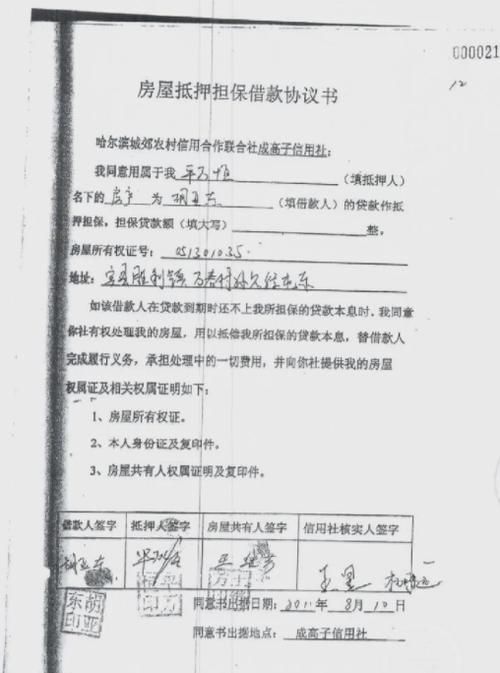 000021
12
房屋抵押担保借款协议书
哈尔滨城郊农村信用合作联合社成高子信用社:
我同意用属于我（填抵押人）
名下的 房产 为 胡亚东（填借款人）的贷款作抵
押担保，担保贷款额（填大写）整。
房屋所有权证号: 051301035
地址: 宾县胜利镇
如该借款人在贷款到期时还不上我所担保的贷款本息时，我同意
你社有权处理我的房屋，用以抵偿我所担保的贷款本息，替借款人
完成履行义务，承担处理中的一切费用，并向你社提供我的房屋
权属证及相关权属证明如下:
1、房屋所有权证。
2、本人身份证及复印件。
3、房屋共有人权属证明及复印件。
借款人签字 抵押人签字 房屋共有人签字 信用社核实人签字
胡亚东
胡亚东印
同意书出据日期: 2011年 8月 10日
同意书出据地点: 成高子信用社